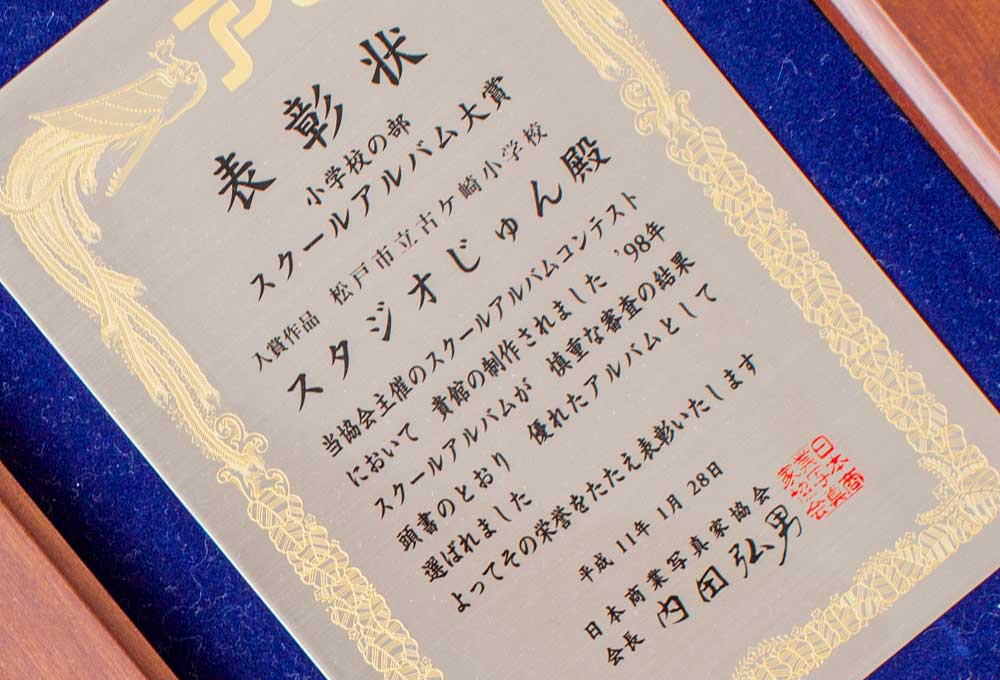 表彰状
小学校の部
スクールアルバム大賞
入賞作品 松戸市立古ケ崎小学校
スタジオじゅん殿
当協会主催のスクールアルバムコンテスト
において 貴館の制作されました '98年
スクールアルバムが 慎重な審査の結果
頭書のとおり 優れたアルバムとして
選ばれました
よってその栄誉をたたえ表彰いたします
平成11年1月28日
日本商業写真家協会
会長 内田弘男